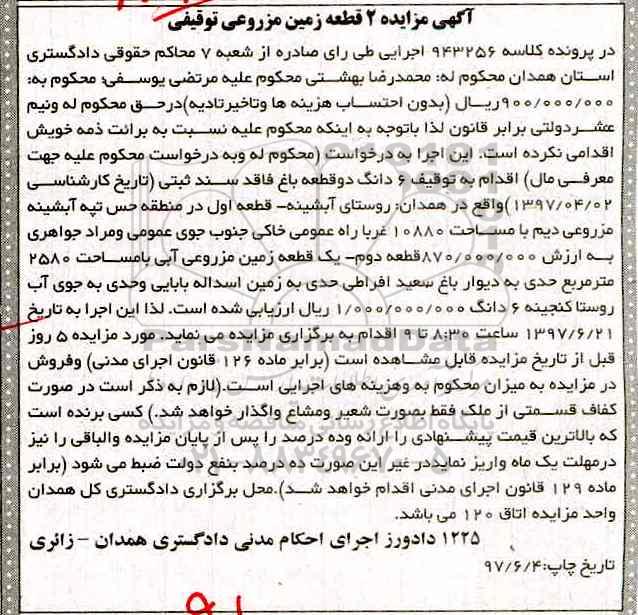 آگهی مزایده ۲ قطعه زمین مزروعی توقیفی
در پرونده کلاسه ۹۴۳۲۵۶ اجرایی طی رای صادره از شعبه ۷ محاکم حقوقی دادگستری
استان همدان محکوم له: محمدرضا بهشتی محکوم علیه مرتضی یوسفی: محکوم به:
۹۰۰/۰۰۰/۰۰۰ریال (بدون احتساب هزینه ها وتاخیرتادیه)درحق محکوم له ونیم
عشردولتی برابر قانون لذا باتوجه به اینکه محکوم علیه نسبت به برائت ذمه خویش
اقدامی نکرده است. این اجرا به درخواست (محکوم له وبه درخواست محکوم علیه جهت
معرفی مال) اقدام به توقیف ۶ دانگ دوقطعه باغ فاقد سند ثبتی (تاریخ کارشناسی
۱۳۹۷/۰۴/۰۲)واقع در همدان: روستای آبشینه- قطعه اول در منطقه حس تپه آبشینه
مزروعی دیم با مساحت ۱۰۸۸۰ غربا راه عمومی خاکی جنوب جوی عمومی ومراد جواهری
به ارزش ۸۷۰/۰۰۰/۰۰۰قطعه دوم- یک قطعه زمین مزروعی آبی بامساحت ۲۵۸۰
مترمربع حدی به دیوار باغ سعید افراطی حدی به زمین اسداله بابایی وحدی به جوی آب
روستا کنجینه ۶ دانگ ۱/۰۰۰/۰۰۰/۰۰۰ ریال ارزیابی شده است. لذا این اجرا به تاریخ
۱۳۹۷/۶/۲۱ ساعت ۸:۳۰ تا ۹ اقدام به برگزاری مزایده می نماید. مورد مزایده ۵ روز
قبل از تاریخ مزایده قابل مشاهده است (برابر ماده ۱۲۶ قانون اجرای مدنی) وفروش
در مزایده به میزان محکوم به وهزینه های اجرایی است.(لازم به ذکر است در صورت
کفاف قسمتی از ملک فقط بصورت شعیر ومشاع واگذار خواهد شد.) کسی برنده است
که بالاترین قیمت پیشنهادی را ارائه وده درصد را پس از پایان مزایده والباقی را نیز
درمهلت یک ماه واریز نمایددر غیر این صورت ده درصد بنفع دولت ضبط می شود (برابر
ماده ۱۲۹ قانون اجرای مدنی اقدام خواهد شد).محل برگزاری دادگستری کل همدان
واحد مزایده اتاق ۱۲۰ می باشد.
۱۲۲۵ دادورز اجرای احکام مدنی دادگستری همدان - زائری
تاریخ چاپ:۹۷/۶/۴